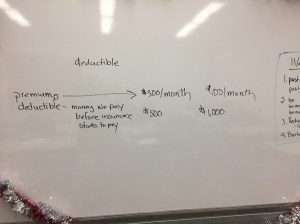 deductible
premiums → $300/month $100/month
deductible – money we pay $500 $1,000
before insurance
starts to pay
1. post
post
2.
3.
4.